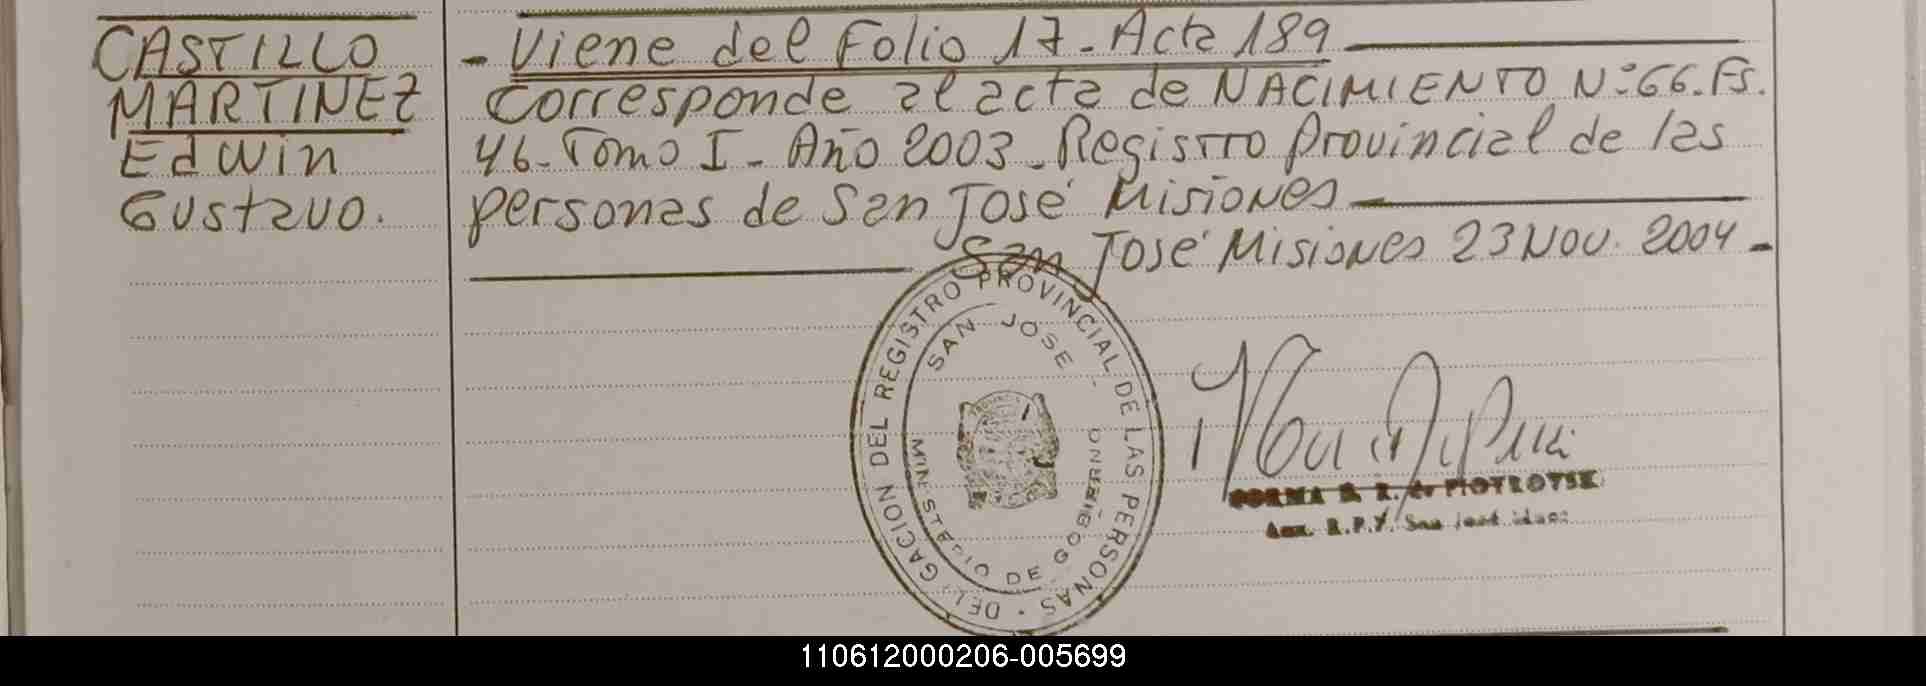 CASTILLO
MARTINEZ
Edwin
Gustavo.
- Viene del Folio 17 - Acta 189
Corresponde al acta de NACIMIENTO N° 66. Fs.
46 - Tomo I - Año 2003 - Registro Provincial de las
personas de San José Misiones
San José Misiones 23 NOV. 2004 -
DEL GACION DEL REGISTRO PROVINCIAL DE LAS PERSONAS
SAN JOSE
MINISTERIO DE GOBIERNO
R. de PIOTROVSK
R.P.
110612000206-005699